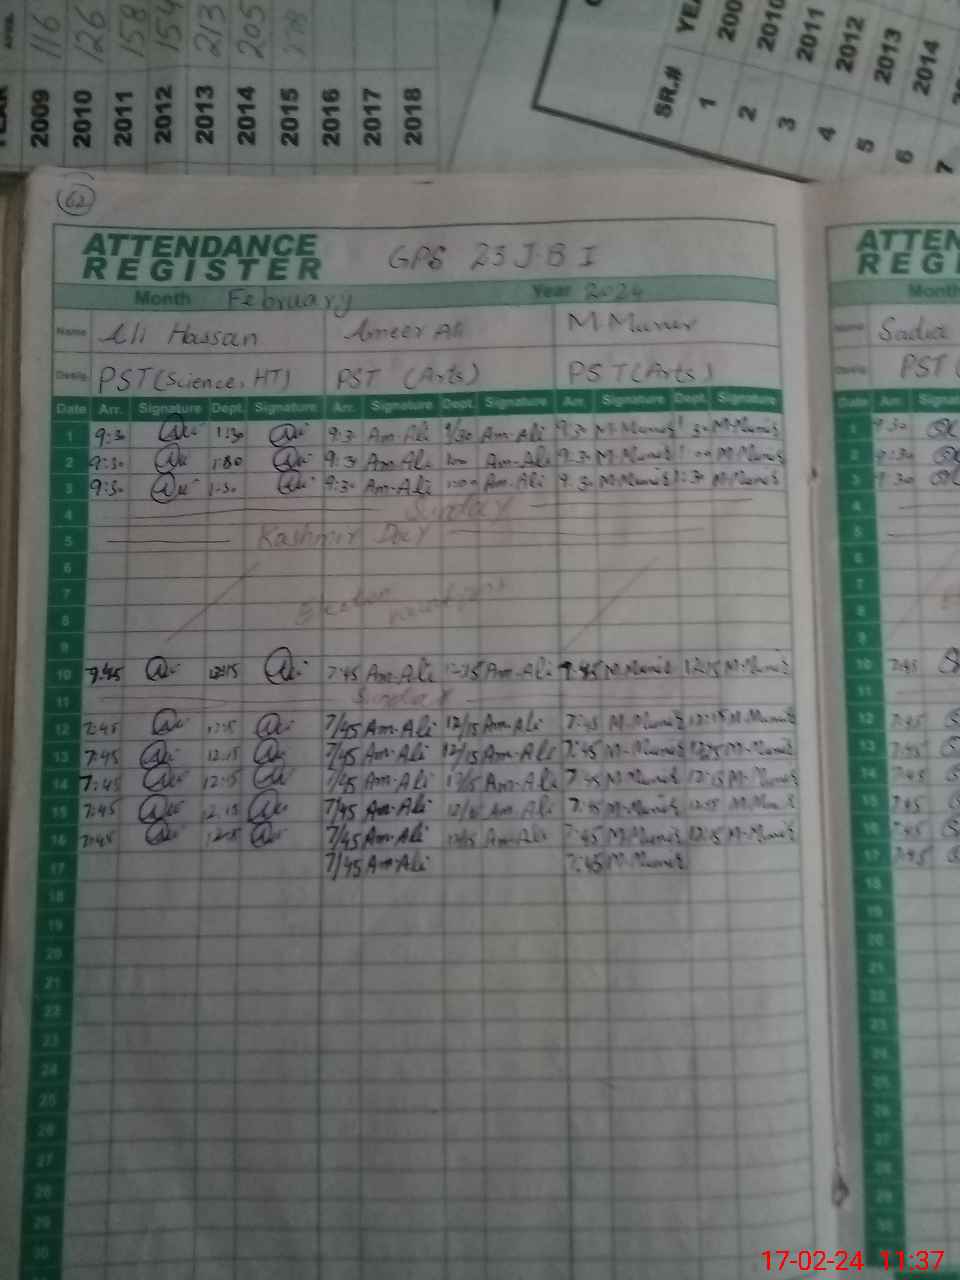 2009 2010 2011 2012 2013 2014 2015 2016 2017 2018
116 126 158 154 213 205
SR.# 1 2 3 4 5 6 7
2010 2011 2012 2013 2014
62
ATTENDANCE
REGISTER
GPS 23 J.B I
Month February Year 2024
Name Ali Hassan Ameer Ali M Munir
Desig. PST (Science, HT) PST (Arts) PST (Arts)
Date Arr. Signature Dept. Signature Arr. Signature Dept. Signature Arr. Signature Dept. Signature
1 9:30 1:30 9:3 Am-Ali 1/30 Am-Ali 9:30 M-Munir M-Munir
2 9:30 9:3 Am-Ali Am-Ali 9:30 M-Munir M-Munir
3 9:30 1:30 9:30 Am-Ali 1:00 Am-Ali 9:30 M-Munir 1:30 M-Munir
4 Sunday
5 Kashmir Day
6
7 Election
8
9
10 7:45 12:15 7:45 Am-Ali 12-15 Am-Ali 7:45 M-Munir 12:15 M-Munir
11 Sunday
12 7:45 12:15 7/45 Am-Ali 12/15 Am-Ali 7:45 M-Munir 12:15 M-Munir
13 7:45 12:15 7/45 Am-Ali 12/15 Am-Ali 7:45 M-Munir 12:15 M-Munir
14 7:45 12:15 7/45 Am-Ali 12/15 Am-Ali 7:45 M-Munir 12:15 M-Munir
15 7:45 12:15 7/45 Am-Ali 12/15 Am-Ali 7:45 M-Munir 12:15
16 7:45 12:15 7/45 Am-Ali 12/15 Am-Ali 7:45 M-Munir 12:15 M-Munir
17 7/45 Am-Ali 7:45 M-Munir
18
19
20
21
22
23
24
25
26
27
28
29
30
ATTEN
REGI
Month
Name Sadia
Desig. PST
Date Arr.
1 9:30
2 9:30
3 9:30
4
5
6
7
8
9
10 7:45
11
12 7:45
13 7:45
14 7:45
15 7:45
16 7:45
17 7:45
18
19
20
21
22
23
24
25
26
27
28
29
30
17-02-24 11:37